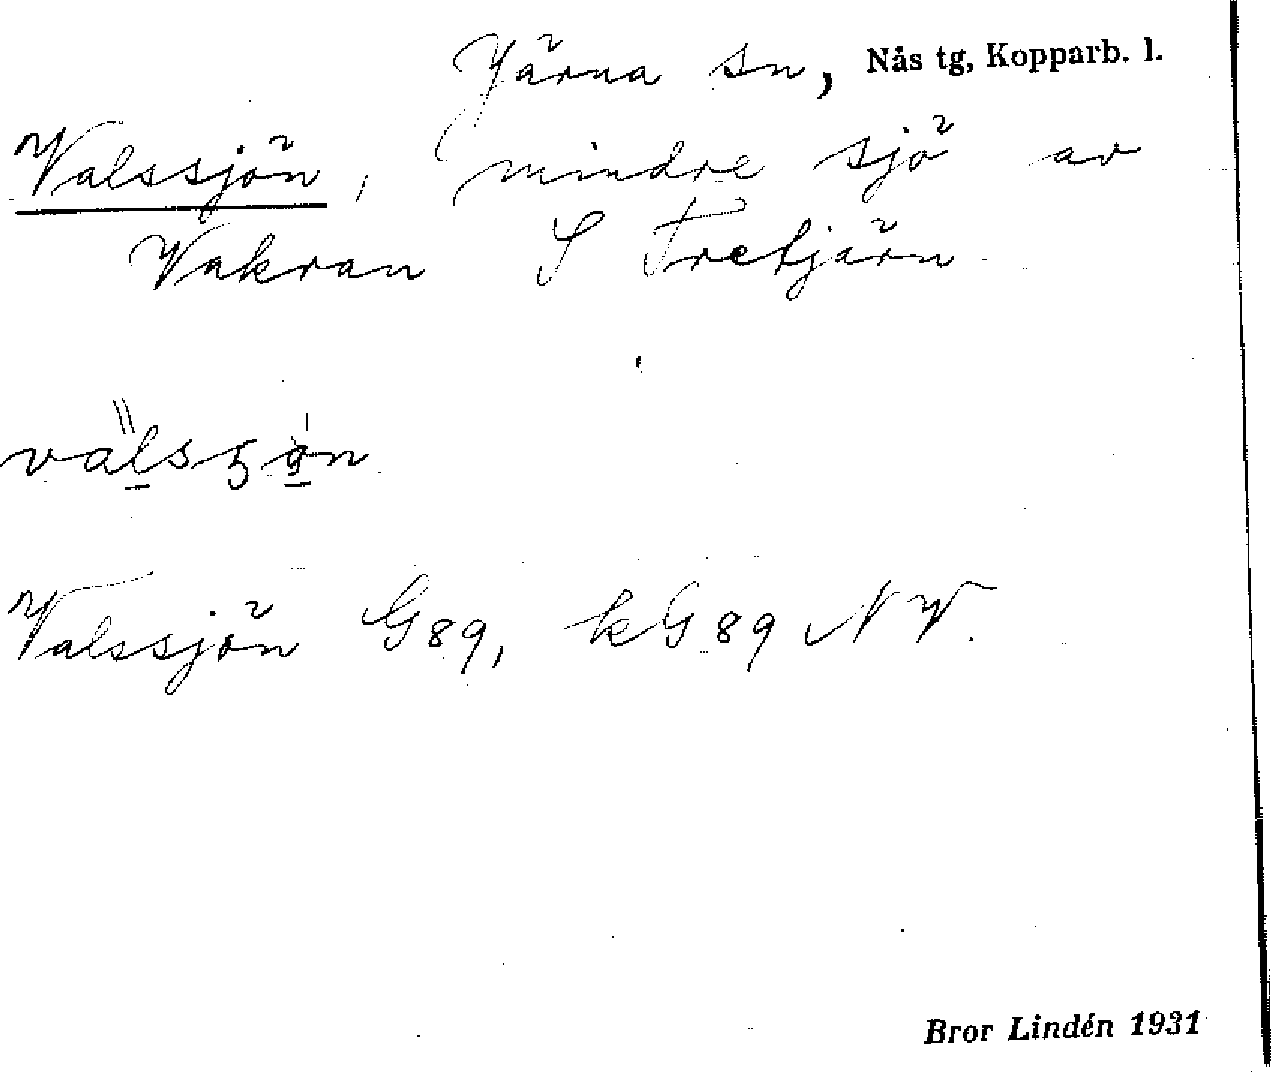 Järna sn, Nås tg, Kopparb. l.
Valssjön, mindre sjö av
Vakran S Tretjärn
Valssjön G89, kG89 NV.
Bror Lindén 1931